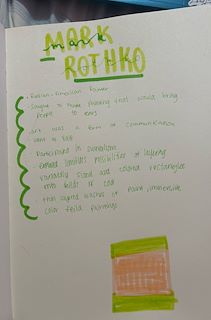 MARK
mark
ROTHKO
• Russian-American Painter
• Sought to make paintings that would bring
people to tears
• art was a form of communication
• went to Yale
• Background in surrealism
• explored limitless possibilities of layering
• variously sized and colored rectangles
onto fields of color
• thin layered washes of paint, immersive
• color field paintings